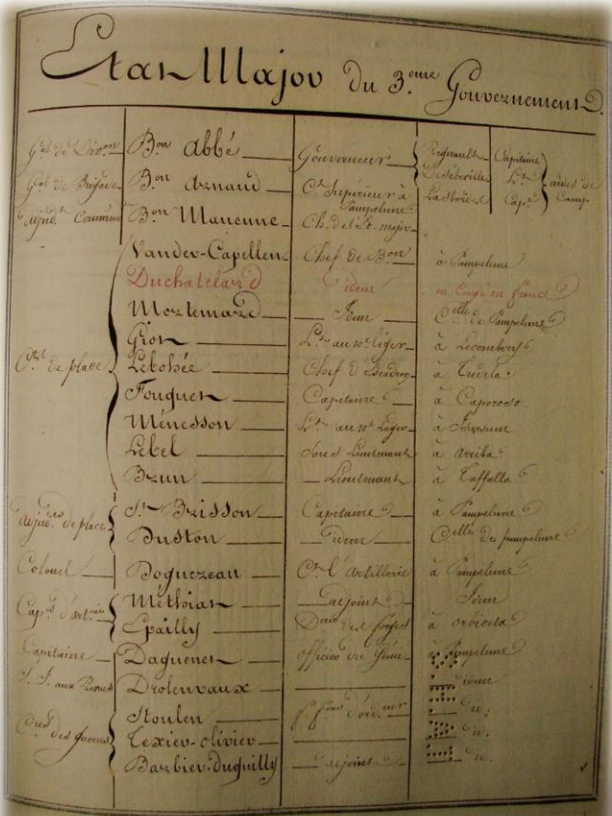 Etat Major du 3.eme Gouvernement
Gal de Divon Bon Abbé Gouverneur Regnault Capitaine
Gal de Brigade Bon Arnaud Ct Supérieur à Pampelune Lt aides de Camp
Adjudt Commt Bon Manenne Ch. de l'Et. major Cape
Vander-Capellen Chef de Bon à Pampelune
Duchatelard idem en congé en france
Mortemard Idem Celle de Pampelune
Cts de place Grou Lt au 10e léger à Lecomberry
Lebohée Chef d'Escadron à Tudela
Fouquet Capitaine à Caporoso
Ménesson Lt au 10e Léger à Irursun
Lebel Sous Lieutenant à Arriba
Brun Lieutenant à Taffalla
Adjuds de place St Brisson Capitaine à Pampelune
Duston idem Celle de pampelune
Colonel Boguereau Ct l'Artillerie à Pampelune
Capes d'artrie Methian adjoint Idem
Epailly Deur des forges à orbiceta
Capitaine Daguenet officier du Génie à Pampelune
S. I. aux Revues Drolenvaux idem
Cres des Guerres Stoulen f. fons d'ordeur do.
Texier-olivier do.
Barbier-duguilly adjoint do.